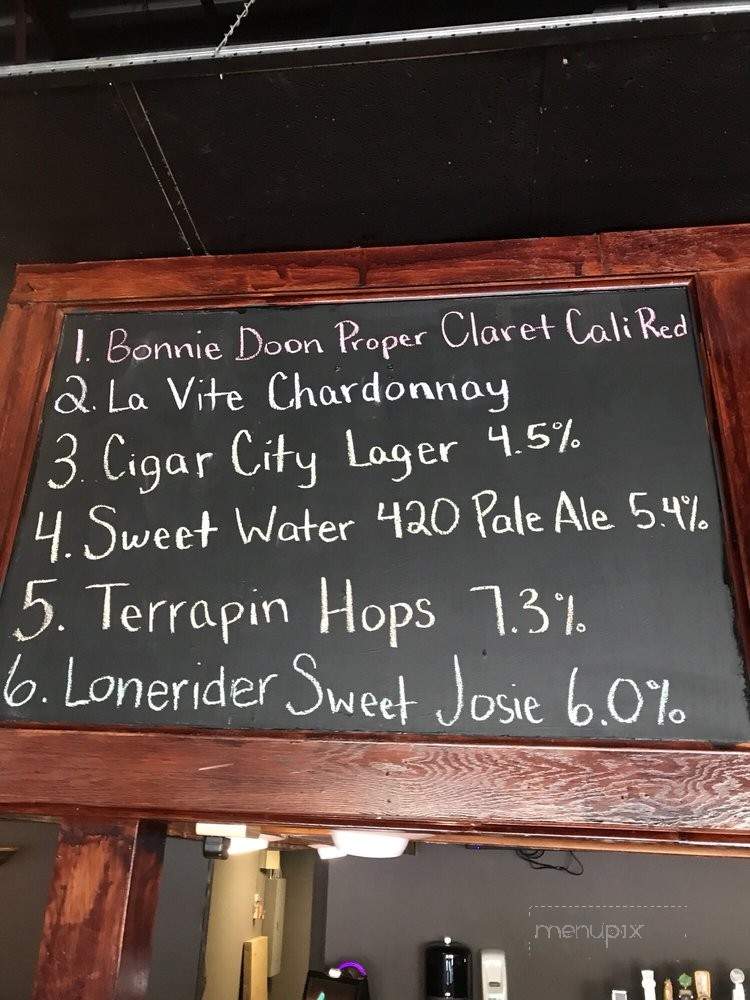 1. Bonnie Doon Proper Claret Cali Red
2. La Vite Chardonnay
3. Cigar City Lager 4.5%
4. Sweet Water 420 Pale Ale 5.4%
5. Terrapin Hops 7.3%
6. Lonerider Sweet Josie 6.0%
menupix